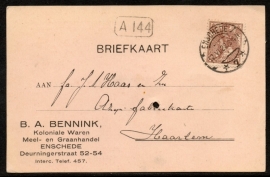 A 144
BRIEFKAART
AAN
fa. J. L. Haas en Zn
Haarlem
B. A. BENNINK,
Koloniale Waren
Meel- en Graanhandel
ENSCHEDE
Deurningerstraat 52-54
Interc. Telef. 457.